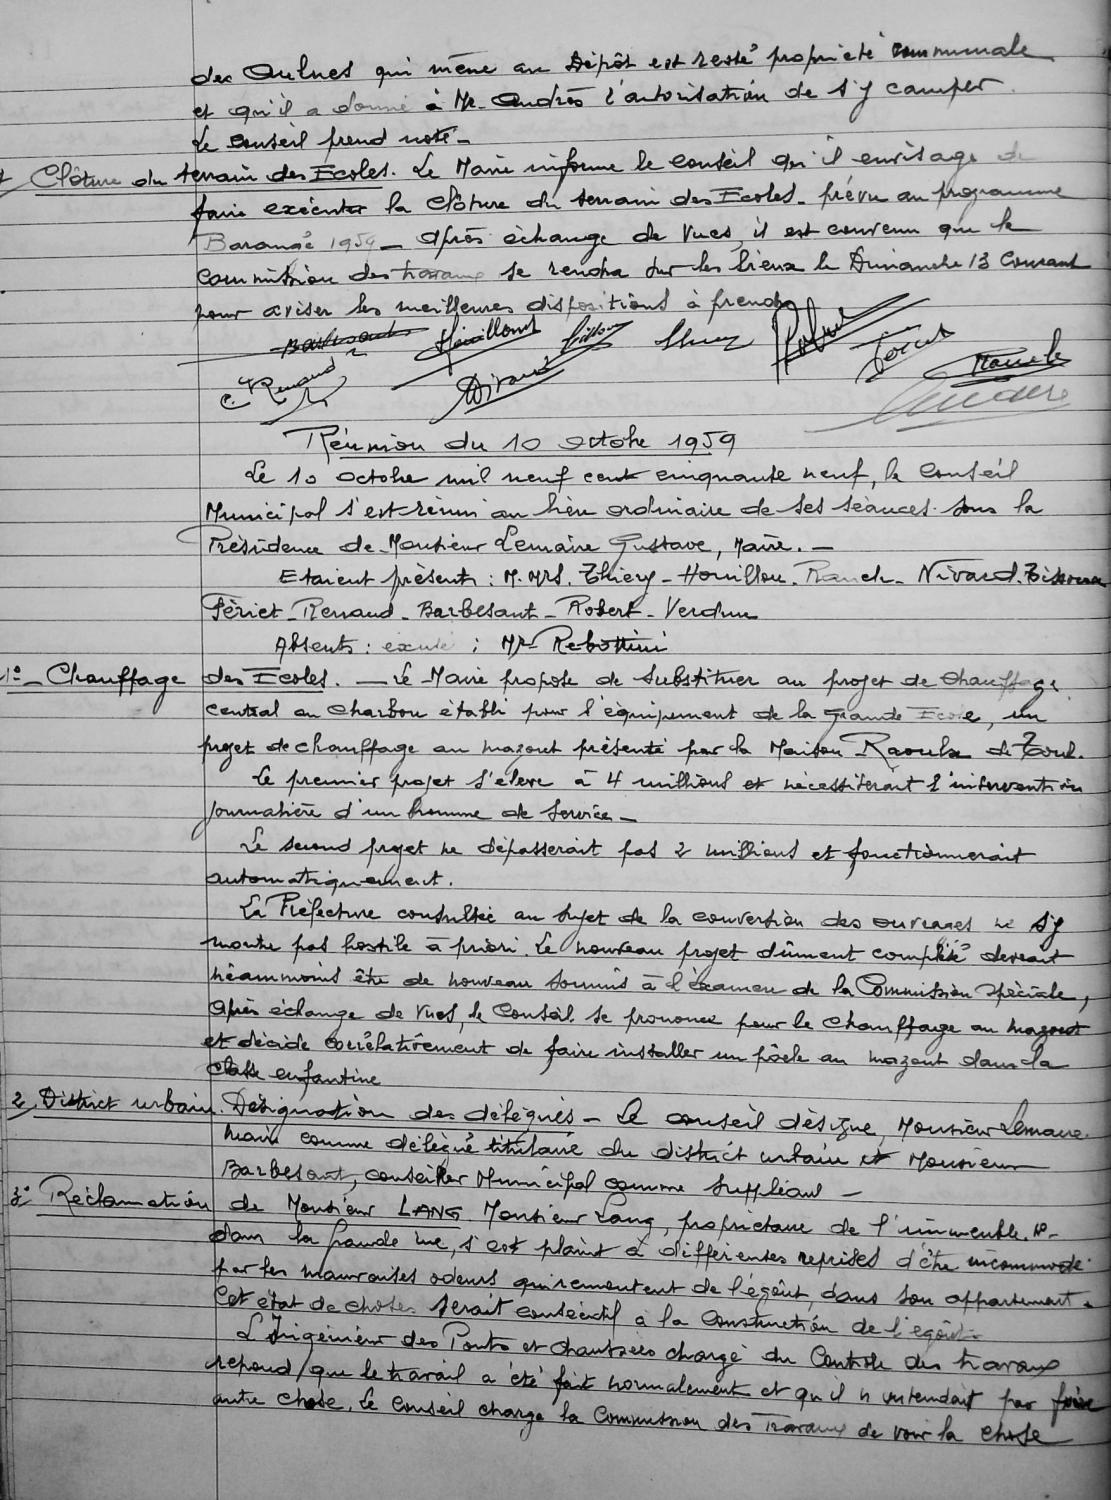 des Aulnes qui mène au Dépôt est resté propriété communale
et qu'il a donné à Mr. Andrès l'autorisation de s'y camper.
Le conseil prend note -
Clôture du terrain des Ecoles. Le Maire informe le conseil qu'il envisage de
faire exécuter la clôture du terrain des Ecoles - prévu au programme
Barangé 1959 - Après échange de vues, il est convenu que la
commission des travaux se rendra sur les lieux le Dimanche 13 courant
pour aviser les meilleures dispositions à prendre
Barbesant Houillon Thiery Robert Fériet
C. Renaud Nivard Ranck Lemaire
Réunion du 10 Octobre 1959
Le 10 octobre mil neuf cent cinquante neuf, le Conseil
Municipal s'est réuni au lieu ordinaire de ses séances sous la
Présidence de Monsieur Lemaire Gustave, Maire. -
Etaient présents : M.MRS. Thiery - Houillon. Ranck - Nivard.
Fériet - Renaud - Barbesant - Robert - Verdun
Absents : excusé : Mr Rebottini
1° - Chauffage des Ecoles. - Le Maire propose de substituer au projet de chauffage
central au charbon établi pour l'équipement de la grande Ecole, un
projet de chauffage au mazout présenté par la Maison de Toul.
Le premier projet s'élève à 4 millions et nécessiterait l'intervention
journalière d'un homme de service -
Le second projet ne dépasserait pas 2 millions et fonctionnerait
automatiquement.
La Préfecture consultée au sujet de la conversion des ouvrages ne s'y
montre pas hostile à priori. Le nouveau projet dûment complété devrait
néammoins être de nouveau soumis à l'éxamen de la Commission spéciale,
Après échange de vues, le Conseil se prononce pour le chauffage au mazout
et décide corrélativement de faire installer un poêle au mazout dans la
classe enfantine
2, District urbain. Désignation des délégués - Le conseil désigne, Monsieur Lemaire
Maire comme délégué titulaire du district urbain et Monsieur
Barbesant, conseiller Municipal comme suppléant -
3° Réclamation de Monsieur LANG. Monsieur Lang, propriétaire de l'immeuble N° -
dans la Grande rue, s'est plaint à différentes reprises d'être incommodé
par les mauvaises odeurs qui remontent de l'égoût, dans son appartement.
Cet état de choses serait consécutif à la construction de l'égoût.
L'Ingénieur des Ponts et chaussées chargé du Contrôle des travaux
répond que le travail a été fait normalement et qu'il n'entendait pas faire
autre chose. Le Conseil charge la Commission des Travaux de voir la chose